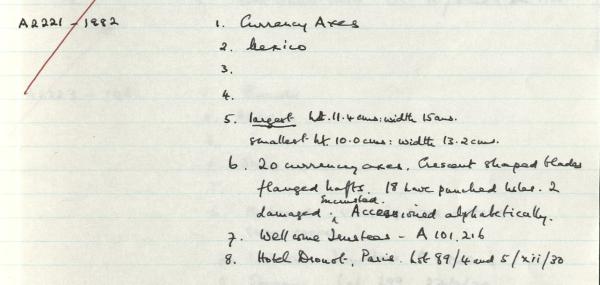 A2221-1982 1. Currency Axes
2. Mexico
3.
4.
5. largest ht. 11.4 cms: width 15 cms.
smallest ht. 10.0 cms: width 13.2 cms.
6. 20 currency axes. Crescent shaped blades
flanged hafts. 18 have punched holes. 2
damaged. encrusted. Accessioned alphabetically.
7. Wellcome Trustees - A 101,216
8. Hotel Drouot, Paris. Lot 89/4 and 5/xii/30